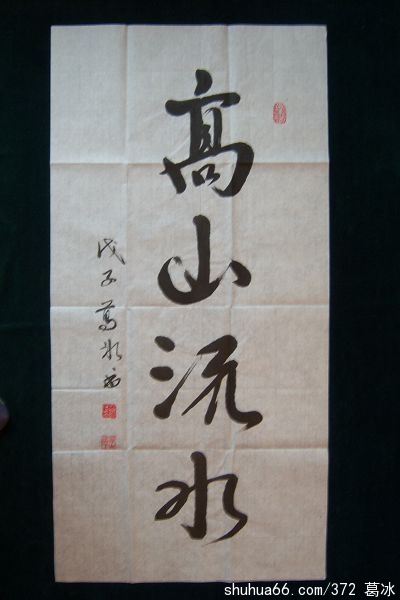 高山流水
戊子葛冰书
shuhua66.com/372 葛冰